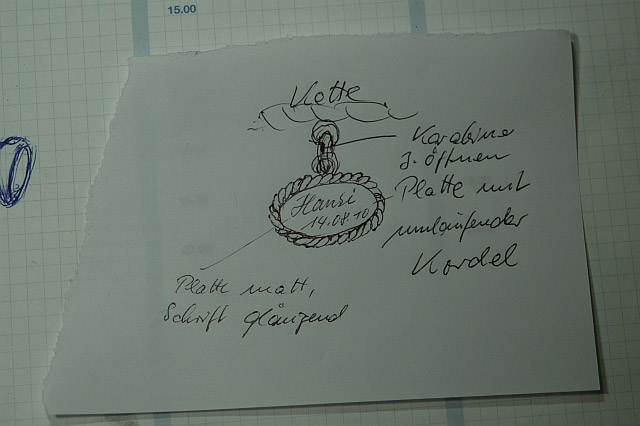 15.00
Kette
Karabiner
z. öffnen
Platte mit
umlaufender
Kordel
Hansi
14.08.10
Platte matt,
Schrift glänzend